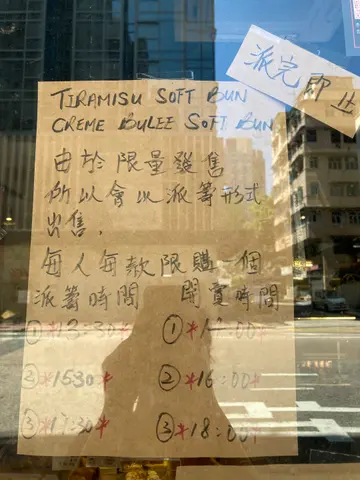 派完即止
TIRAMISU SOFT BUN
CREME BULEE SOFT BUN
由於限量發售
所以會以派籌形式
出售,
每人每款限購一個
派籌時間 開賣時間
①*13:30* ①*14:00*
②*1530* ②*16:00*
③*17:30* ③*18:00*